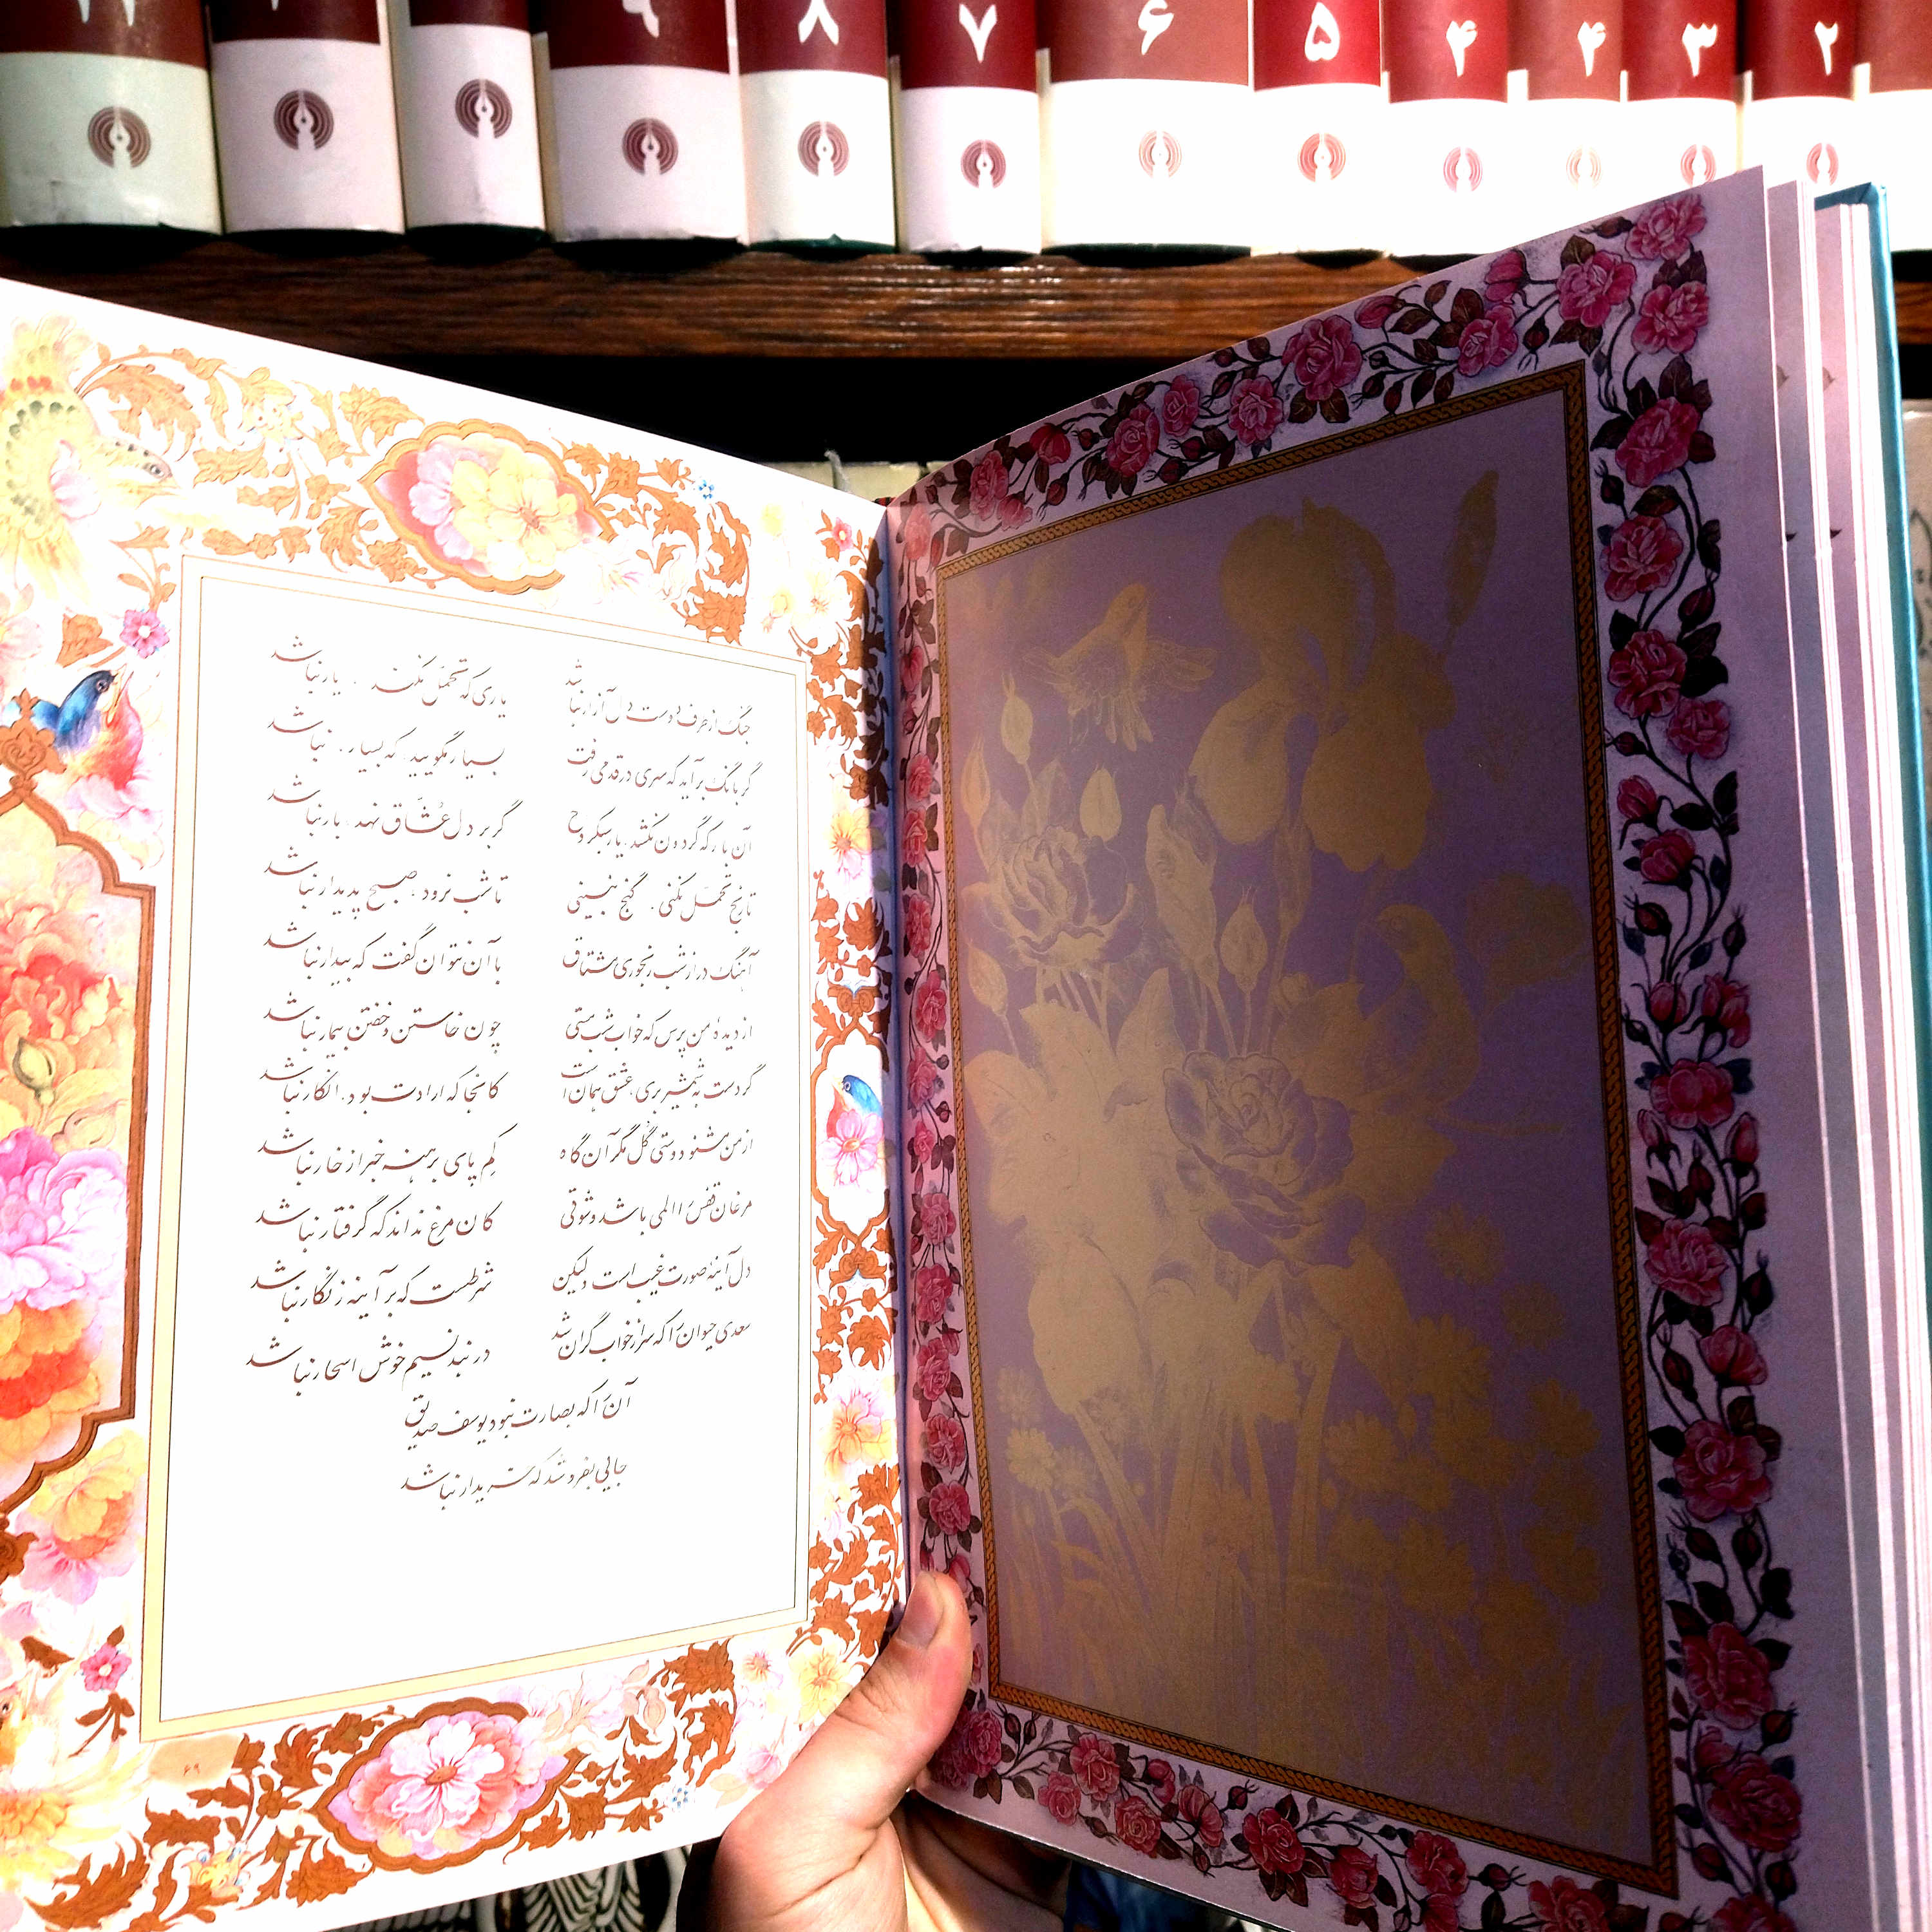 ۲
۳
۴
۴
۵
۶
۷
۸
۹
جنگ از طرف دوست دل آزار نباشد یاری که تحمّل نکند، یار نباشد
گر بانگ برآید که سری در قدمی رفت بسیار مگویید، که بسیار نباشد
آن بار که گردون نکشد، یار سبکروح گر بر دل عُشّاق نهد، بار نباشد
تا رنج تحمّل نکنی، گنج نبینی تا شب نرود، صبح پدیدار نباشد
آهنگ دراز شب رنجوری مشتاق با آن نتوان گفت که بیدار نباشد
از دیدهٔ من پرس که خواب شب مستی چون خاستن و خفتن بیمار نباشد
گر دست به شمشیر بری، عشق همان است کانجا که ارادت بود، انکار نباشد
از من مشنو دوستی گُل مگر آن گاه کِم پای برهنه خبر از خار نباشد
مرغان قفس را المی باشد و شوقی کان مرغ نداند که گرفتار نباشد
دل آینهٔ صورت غیب است ولیکن شرطست که بر آینه زنگار نباشد
سعدی حیوان را که سر از خواب گران شد در بند نسیم خوش اسحار نباشد
آن را که بصارت نبود یوسف صدیق
جایی بفروشد که خریدار نباشد
۶۹